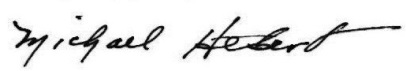 Michael Hebert